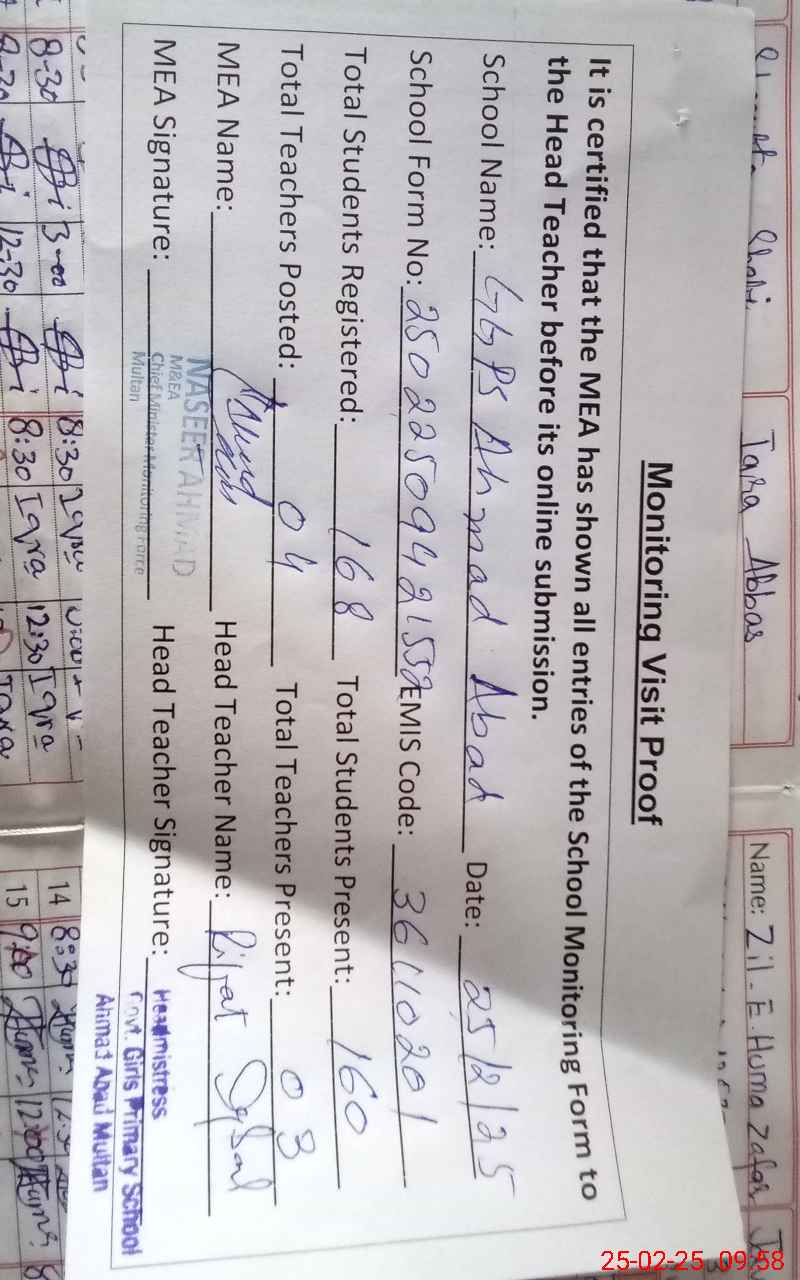 Monitoring Visit Proof
It is certified that the MEA has shown all entries of the School Monitoring Form to
the Head Teacher before its online submission.
School Name: GGPS Ahmad Abad Date: 25/2/25
School Form No: 25022509421552 EMIS Code: 36110201
Total Students Registered: 168 Total Students Present: 160
Total Teachers Posted: 04 Total Teachers Present: 03
MEA Name: Head Teacher Name: Rifat
NASEER AHMAD
M&EA
Chief Minister Monitoring Force
Multan
MEA Signature: Head Teacher Signature:
Headmistress
Govt. Girls Primary School
Ahmad Abad Multan
Tara Abbas
Name: Zil-E-Huma Zafar
8-30 3-00 8:30 Iqra
12-30 8:30 Iqra 12:30 Iqra
14 8:30
15 9:00 12:00
25-02-25 09:58